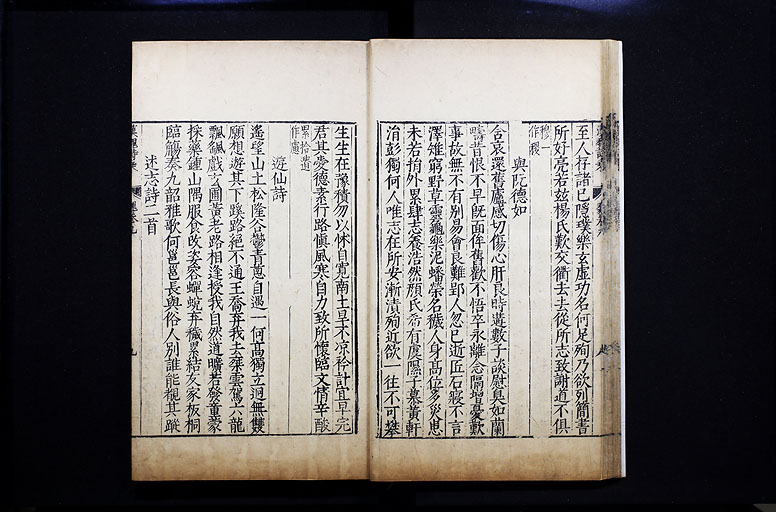 至人存諸己隱璞樂玄虛功名何足殉乃欲列簡書
所好亮若茲楊氏歎交衢去去從所志致謝道不俱
穆作稷
與阮德如
含哀還舊廬感切傷心肝良時遘數子談慰臭如蘭
疇昔恨不早既面侔舊歡不悟卒永離念隔增憂歎
事故無不有別易會良難郢人忽已逝匠石寢不言
澤雉窮野草靈龜樂泥蟠榮名穢人身高位多災患
未若捐外累肆志養浩然顏氏希有虞隰子慕黃軒
涓彭獨何人唯志在所安漸漬殉近欲一往不可攀
生生在豫積勿以怵自寬南土旱不凉矜計宜早完
君其愛德素行路慎風寒自力致所懷臨文情辛酸
遊仙詩
遙望山上松隆谷鬱青葱自遇一何高獨立迥無雙
願想遊其下蹊路絕不通王喬弃我去乘雲駕六龍
飄颻戲玄圃黃老路相逢授我自然道曠若發童蒙
採藥鍾山隅服食改姿容蟬蛻弃穢累結友家板桐
臨觴奏九韶雅歌何邕邕長與俗人別誰能覩其蹤
述志詩二首